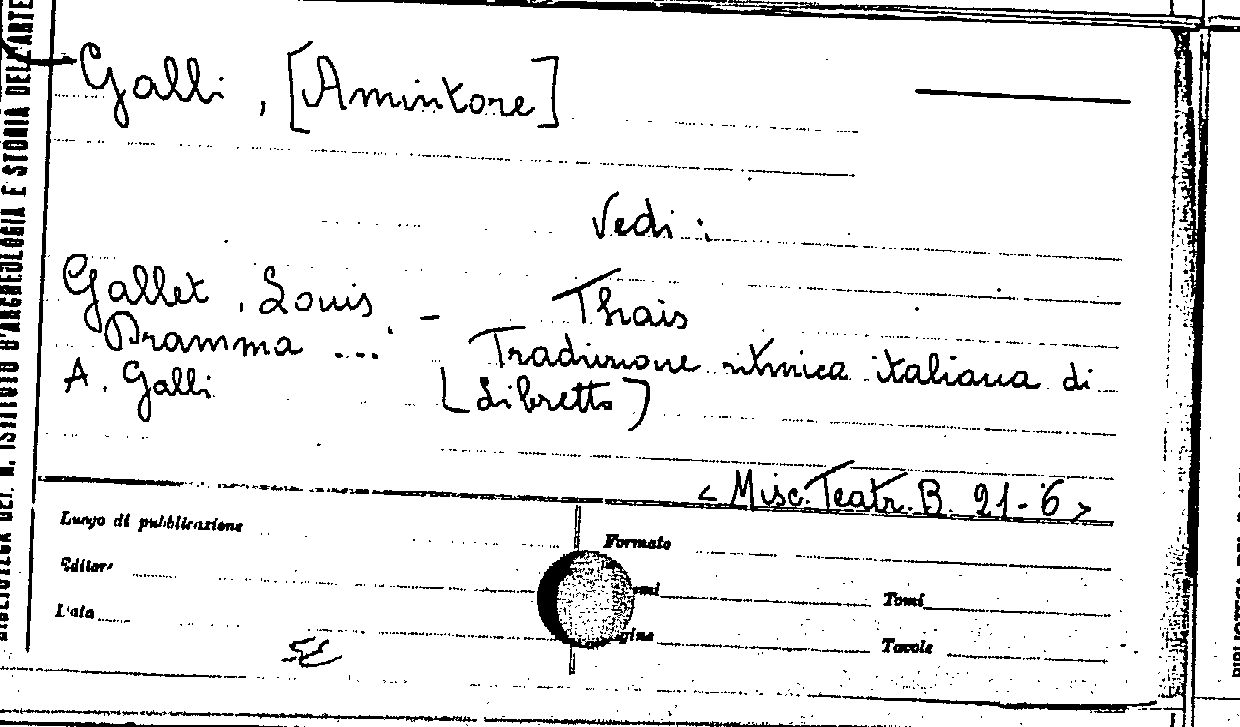 BIBLIOTECA DEL R. ISTITUTO D'ARCHEOLOGIA E STORIA DELL'ARTE
Galli, [Amintore]
Vedi:
Gallet, Louis - Thais
Dramma ... Traduzione ritmica italiana di
A. Galli [Libretto]
<Misc. Teatr. B. 21-6>
Luogo di pubblicazione
Formato
Editore
Data
Tomi
Tavole